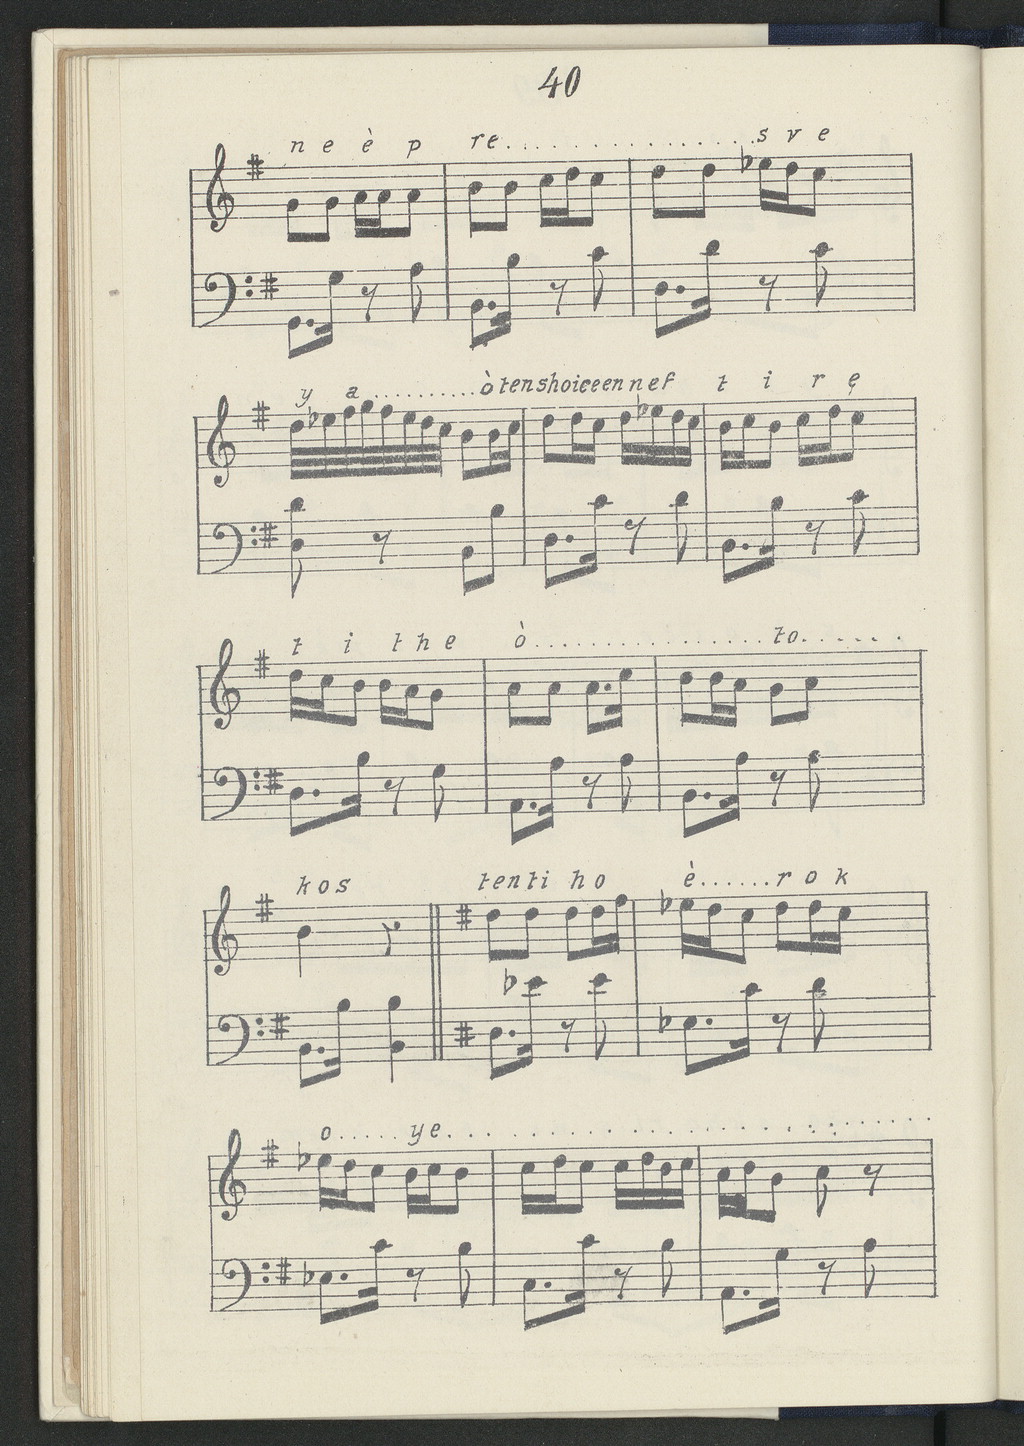 40
n e è p re. . . . . . . . . . . . . . . . s v e
y a . . . . . . . . . . ò tenshoiceennef t i r ę
t i t h e ò. . . . . . . . . . . . . . . . to. . . . . .
k o s tenti h o è. . . . . . r o k
o. . . . . y e. . . . . . . . . . . . . . . . . . . . . . . .